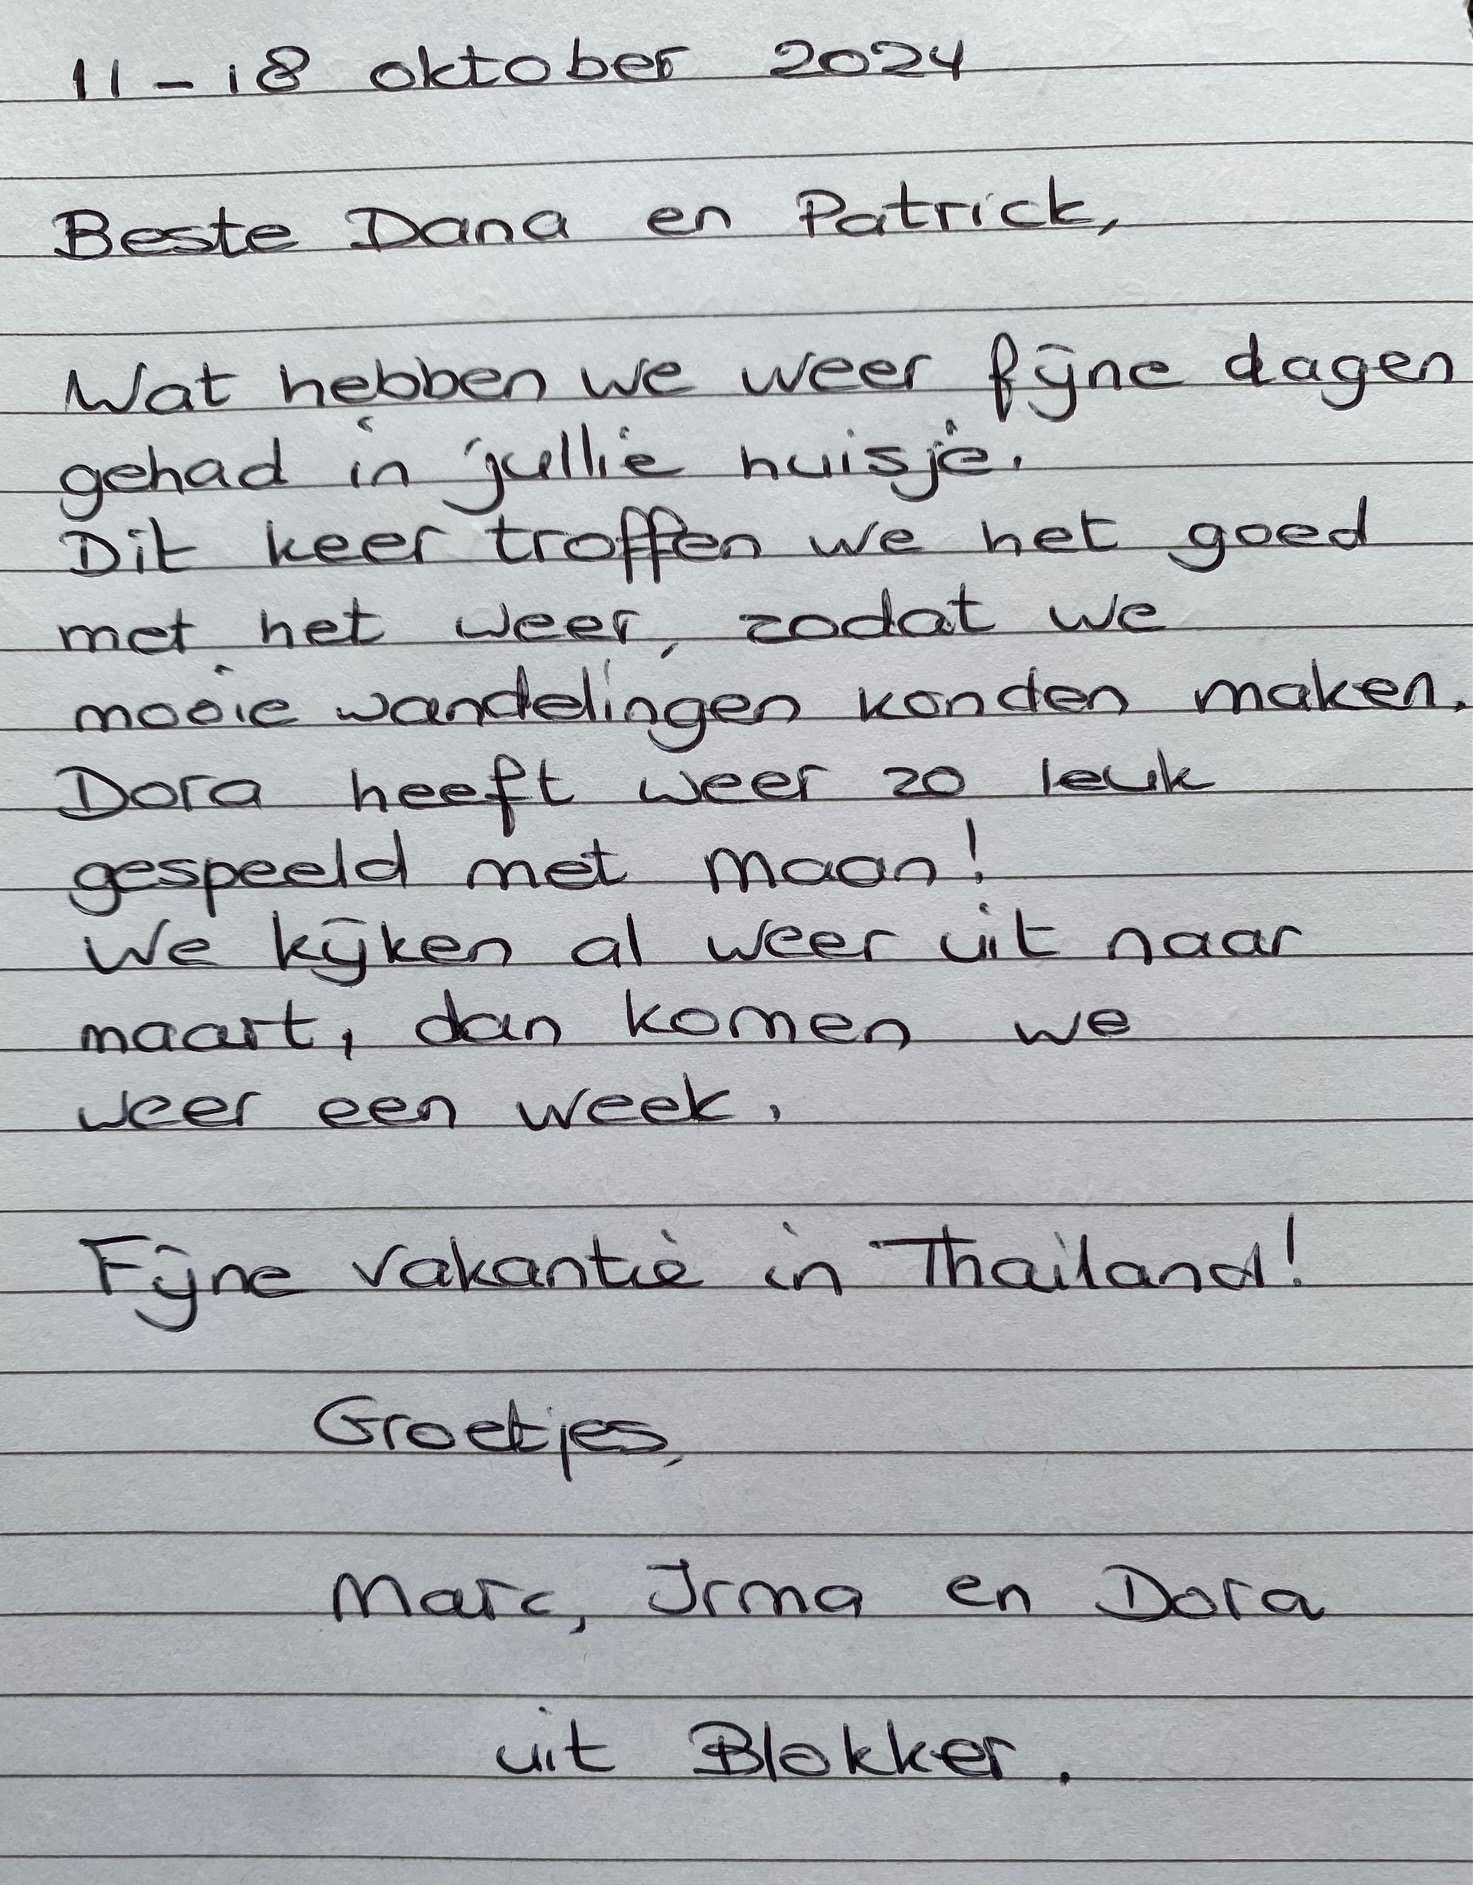 11 - 18 oktober 2024
Beste Dana en Patrick,
Wat hebben we weer fijne dagen
gehad in jullie huisje.
Dit keer troffen we het goed
met het weer, zodat we
mooie wandelingen konden maken.
Dora heeft weer zo leuk
gespeeld met Maan!
We kijken al weer uit naar
maart, dan komen we
weer een week.
Fijne vakantie in Thailand!
Groetjes,
Marc, Irma en Dora
uit Blokker.